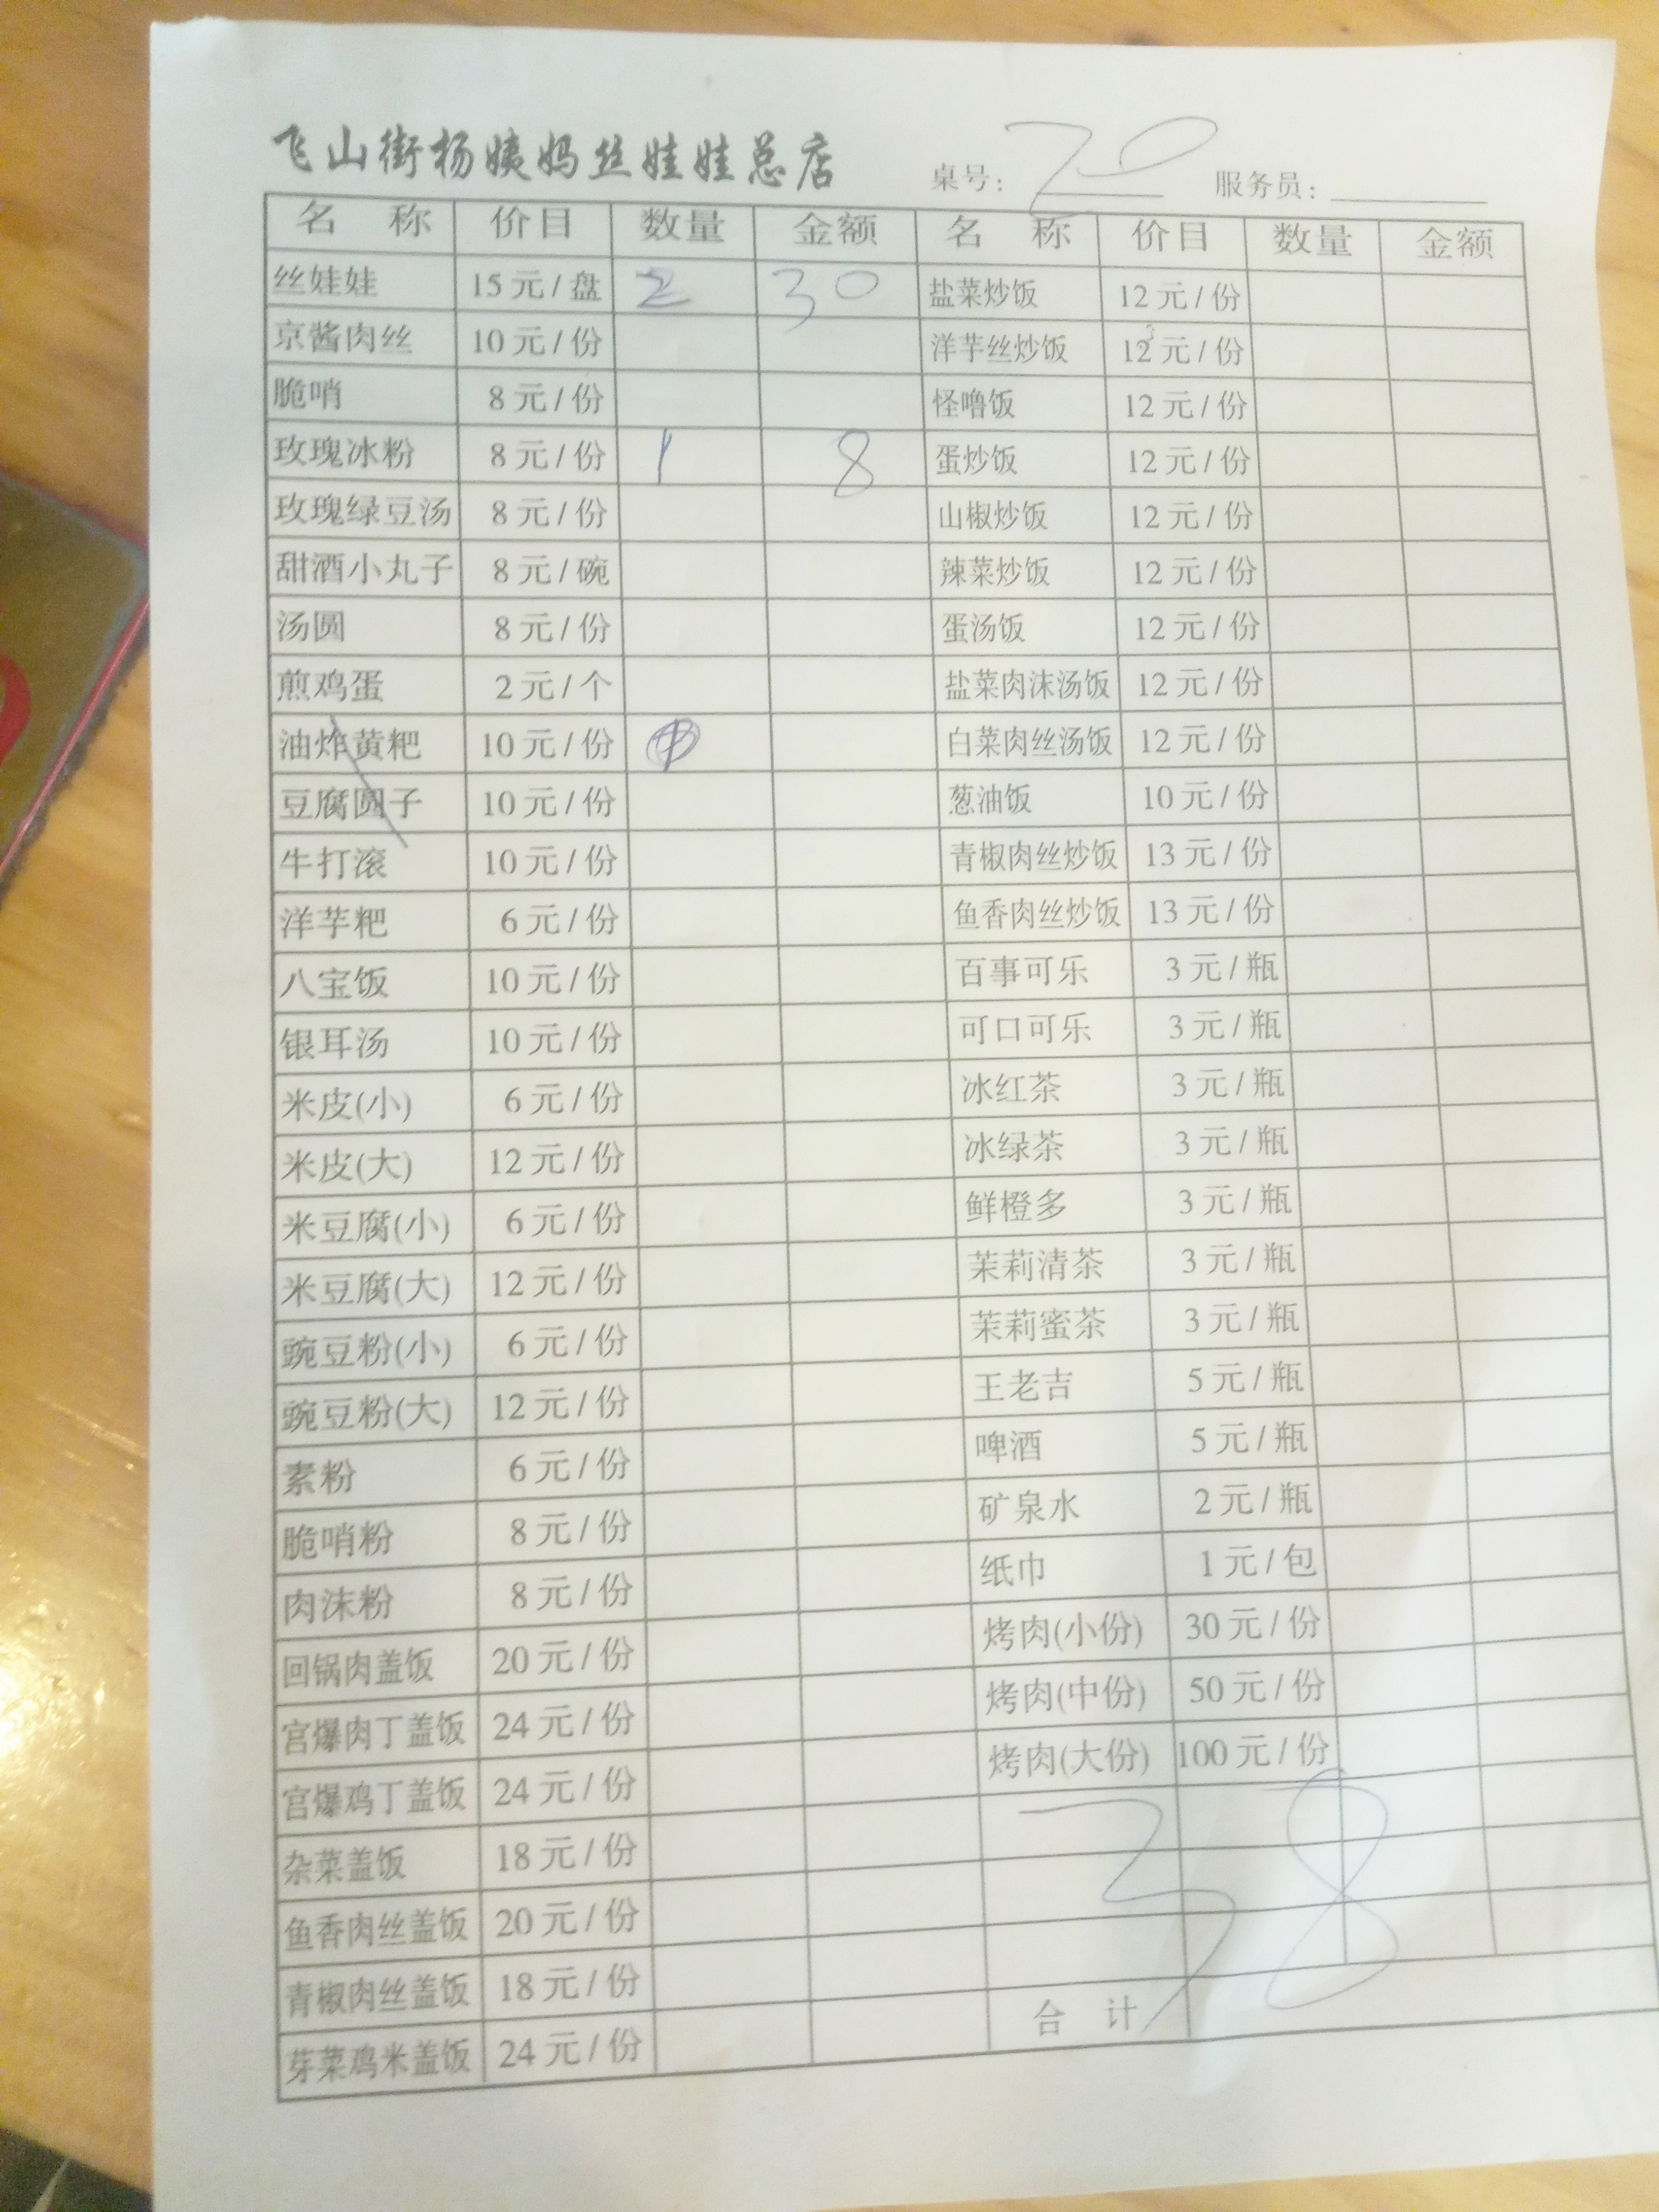 飞山街杨姨妈丝娃娃总店 桌号: 20 服务员:
名 称 价目 数量 金额 名 称 价目 数量 金额
丝娃娃 15元/盘 2 30 盐菜炒饭 12元/份
京酱肉丝 10元/份 洋芋丝炒饭 12元/份
脆哨 8元/份 怪噜饭 12元/份
玫瑰冰粉 8元/份 1 8 蛋炒饭 12元/份
玫瑰绿豆汤 8元/份 山椒炒饭 12元/份
甜酒小丸子 8元/碗 辣菜炒饭 12元/份
汤圆 8元/份 蛋汤饭 12元/份
煎鸡蛋 2元/个 盐菜肉沫汤饭 12元/份
油炸黄粑 10元/份 白菜肉丝汤饭 12元/份
豆腐圆子 10元/份 葱油饭 10元/份
牛打滚 10元/份 青椒肉丝炒饭 13元/份
洋芋粑 6元/份 鱼香肉丝炒饭 13元/份
八宝饭 10元/份 百事可乐 3元/瓶
银耳汤 10元/份 可口可乐 3元/瓶
米皮(小) 6元/份 冰红茶 3元/瓶
米皮(大) 12元/份 冰绿茶 3元/瓶
米豆腐(小) 6元/份 鲜橙多 3元/瓶
米豆腐(大) 12元/份 茉莉清茶 3元/瓶
豌豆粉(小) 6元/份 茉莉蜜茶 3元/瓶
豌豆粉(大) 12元/份 王老吉 5元/瓶
素粉 6元/份 啤酒 5元/瓶
脆哨粉 8元/份 矿泉水 2元/瓶
肉沫粉 8元/份 纸巾 1元/包
回锅肉盖饭 20元/份 烤肉(小份) 30元/份
宫爆肉丁盖饭 24元/份 烤肉(中份) 50元/份
宫爆鸡丁盖饭 24元/份 烤肉(大份) 100元/份
杂菜盖饭 18元/份 38
鱼香肉丝盖饭 20元/份
青椒肉丝盖饭 18元/份 合 计
芽菜鸡米盖饭 24元/份